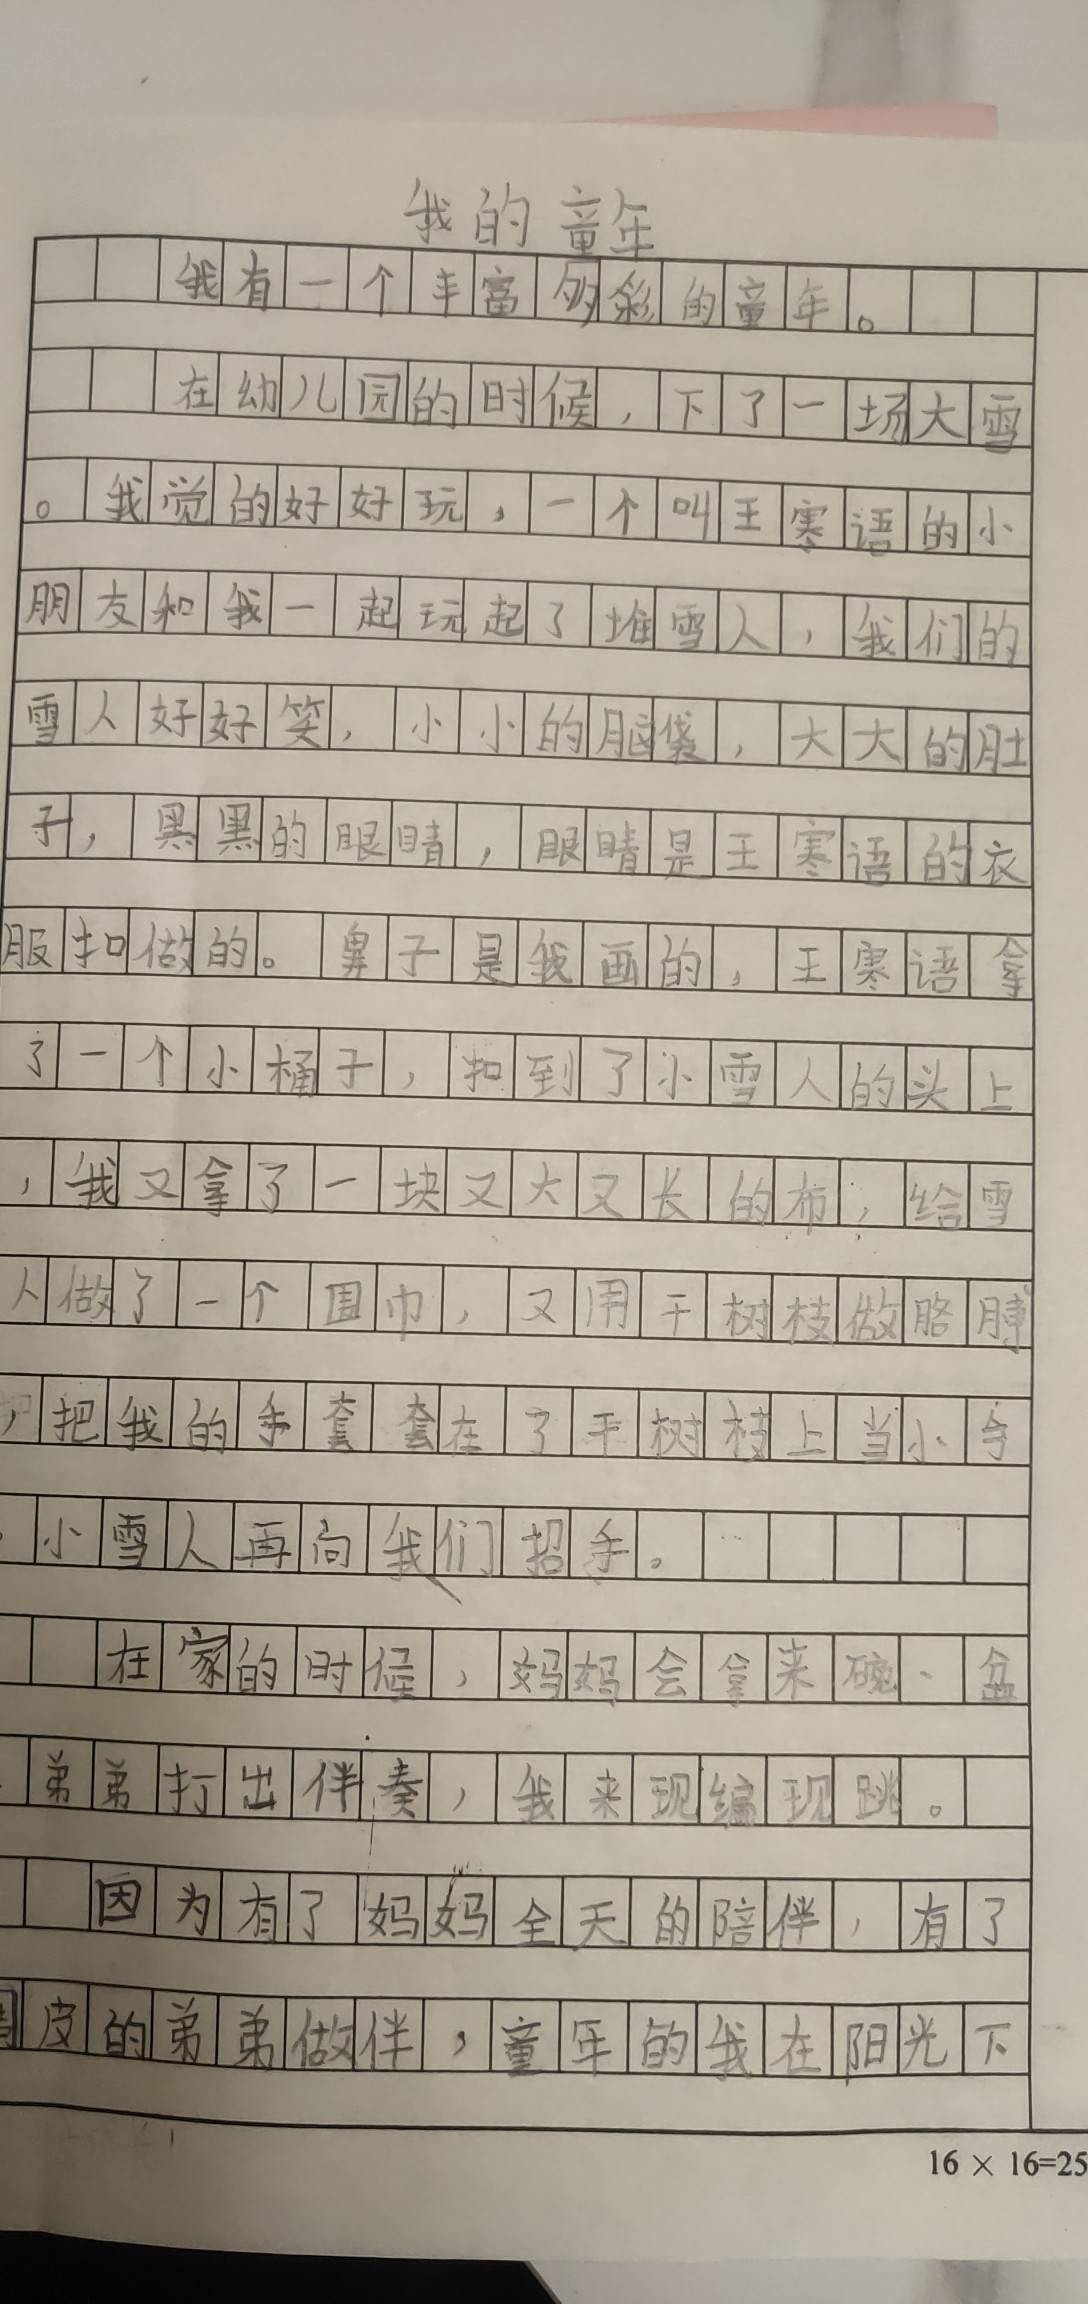 我的童年
我有一个丰富多彩的童年。
在幼儿园的时候，下了一场大雪
。我觉的好好玩，一个叫王寒语的小
朋友和我一起玩起了堆雪人，我们的
雪人好好笑，小小的脑袋，大大的肚
子，黑黑的眼睛，眼睛是王寒语的衣
服扣做的。鼻子是我画的，王寒语拿
了一个小桶子，扣到了小雪人的头上
，我又拿了一块又大又长的布，给雪
人做了一个围巾，又用干树枝做胳膊
，把我的手套套在了干树枝上当小手
小雪人再向我们招手。
在家的时候，妈妈会拿来碗、盆
弟弟打出伴奏，我来现编现跳。
因为有了妈妈全天的陪伴，有了
皮的弟弟做伴，童年的我在阳光下
16×16=25